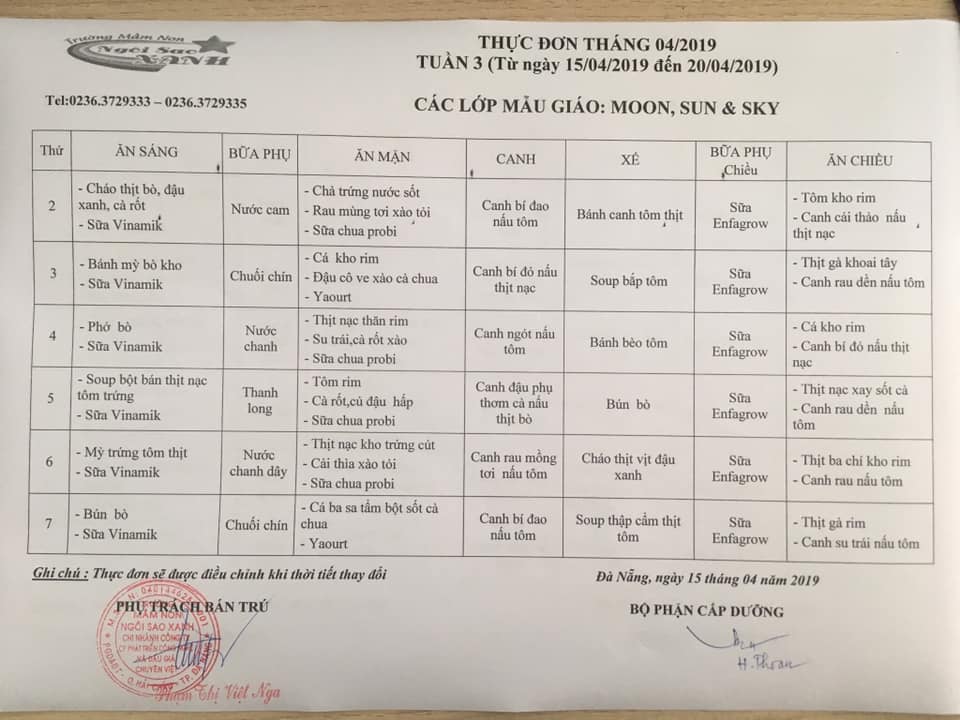 Trường Mầm Non
Ngôi Sao
XANH
THỰC ĐƠN THÁNG 04/2019
TUẦN 3 (Từ ngày 15/04/2019 đến 20/04/2019)
Tel:0236.3729333 – 0236.3729335
CÁC LỚP MẪU GIÁO: MOON, SUN & SKY
Thứ ĂN SÁNG BỮA PHỤ ĂN MẶN CANH XẾ BỮA PHỤ Chiều ĂN CHIỀU
2
- Cháo thịt bò, đậu
xanh, cà rốt
- Sữa Vinamik
Nước cam
- Chả trứng nước sốt
- Rau mùng tơi xào tỏi
- Sữa chua probi
Canh bí đao
nấu tôm
Bánh canh tôm thịt
Sữa
Enfagrow
- Tôm kho rim
- Canh cải thảo nấu
thịt nạc
3
- Bánh mỳ bò kho
- Sữa Vinamik
Chuối chín
- Cá kho rim
- Đậu cô ve xào cà chua
- Yaourt
Canh bí đỏ nấu
thịt nạc
Soup bắp tôm
Sữa
Enfagrow
- Thịt gà khoai tây
- Canh rau dền nấu tôm
4
- Phở bò
- Sữa Vinamik
Nước
chanh
- Thịt nạc thăn rim
- Su trái,cà rốt xào
- Sữa chua probi
Canh ngót nấu
tôm
Bánh bèo tôm
Sữa
Enfagrow
- Cá kho rim
- Canh bí đỏ nấu thịt
nạc
5
- Soup bột bán thịt nạc
tôm trứng
- Sữa Vinamik
Thanh
long
- Tôm rim
- Cà rốt,củ đậu hấp
- Sữa chua probi
Canh đậu phụ
thơm cà nấu
thịt bò
Bún bò
Sữa
Enfagrow
- Thịt nạc xay sốt cà
- Canh rau dền nấu
tôm
6
- Mỳ trứng tôm thịt
- Sữa Vinamik
Nước
chanh dây
- Thịt nạc kho trứng cút
- Cải thìa xào tỏi
- Sữa chua probi
Canh rau mồng
tơi nấu tôm
Cháo thịt vịt đậu
xanh
Sữa
Enfagrow
- Thịt ba chỉ kho rim
- Canh rau nấu tôm
7
- Bún bò
- Sữa Vinamik
Chuối chín
- Cá ba sa tẩm bột sốt cà
chua
- Yaourt
Canh bí đao
nấu tôm
Soup thập cẩm thịt
tôm
Sữa
Enfagrow
- Thịt gà rim
- Canh su trái nấu tôm
Ghi chú : Thực đơn sẽ được điều chỉnh khi thời tiết thay đổi
Đà Nẵng, ngày 15 tháng 04 năm 2019
PHỤ TRÁCH BÁN TRÚ
BỘ PHẬN CẤP DƯỠNG
MẦM NON
NGÔI SAO XANH
CHI NHÁNH CÔNG
CHUYÊN VIỆT
Phạm Thị Việt Nga